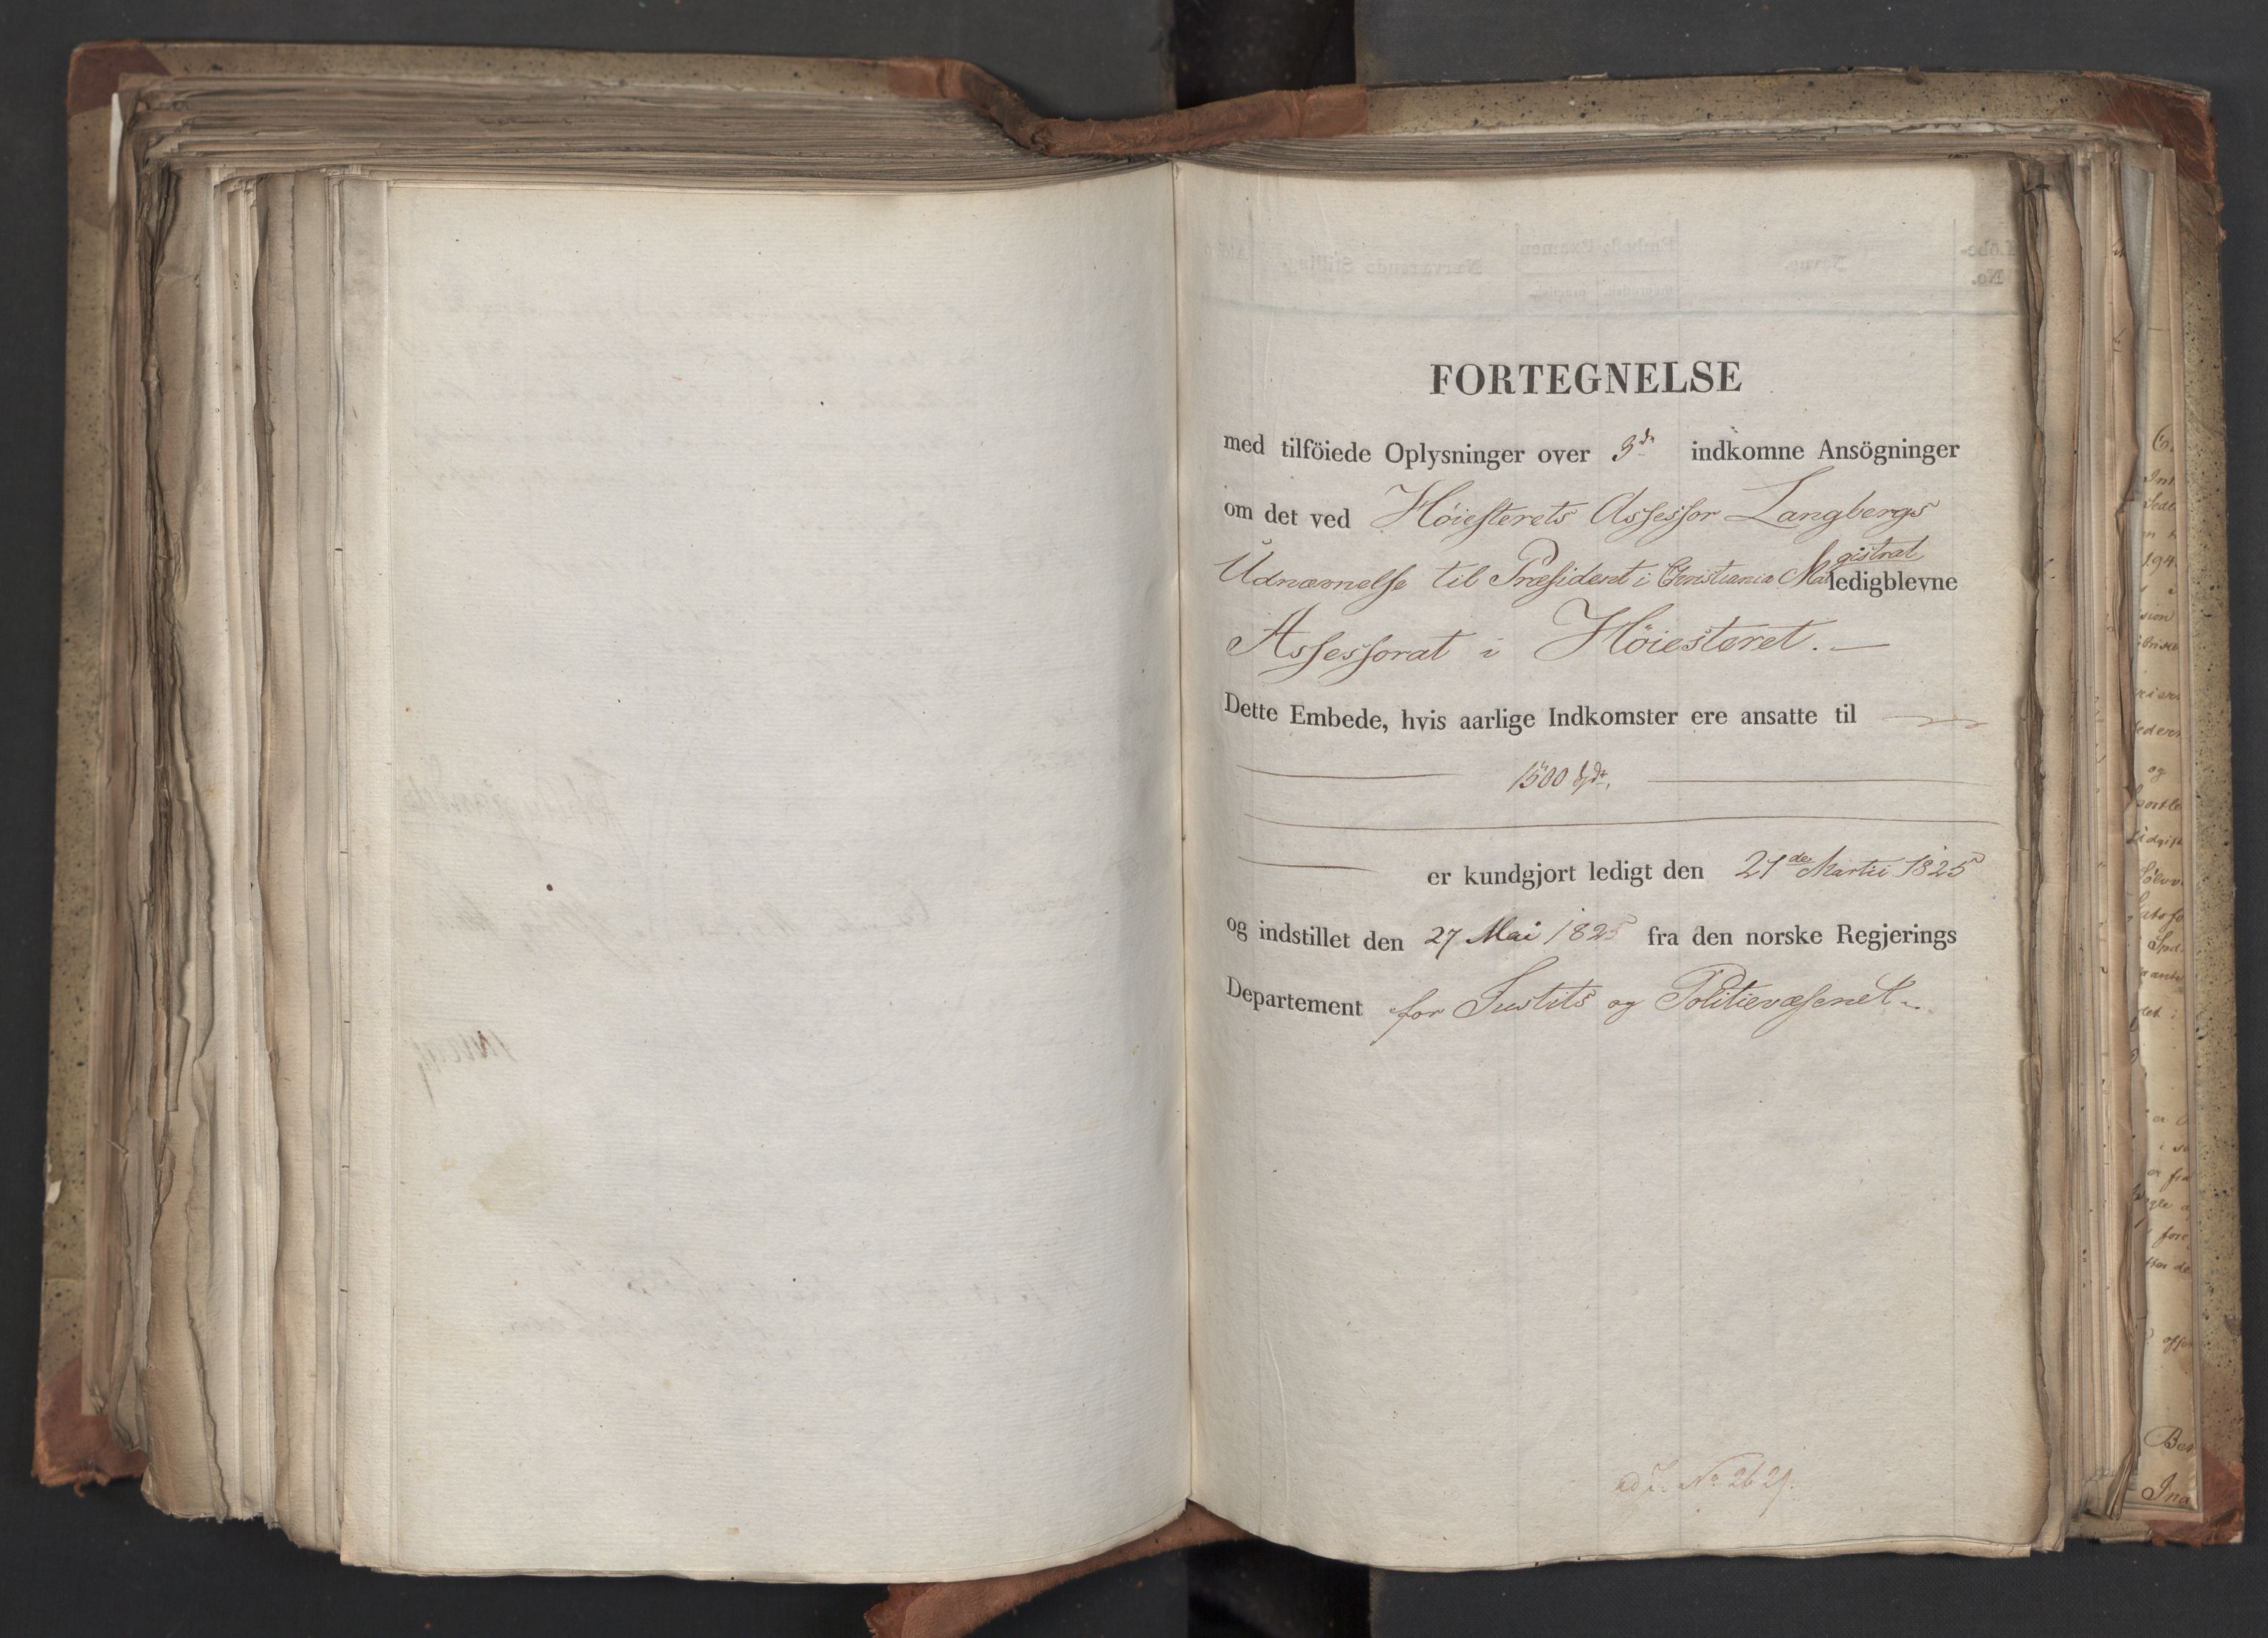 FORTEGNELSE
med tilföiede Oplysninger over 3de indkomne Ansögninger
om det ved Höiesterets Assessor Langbergs
Udnævnelse til Præsident i Christiania Magistrat ledigblevne
Assessorat i Höiesteret. —
Dette Embede, hvis aarlige Indkomster ere ansatte til
1500 Spd.
er kundgjort ledigt den 21de Martii 1825
og indstillet den 27 Mai 1825 fra den norske Regjerings
Departement for Justits og Politievæsenet.
ad J. No 2629.